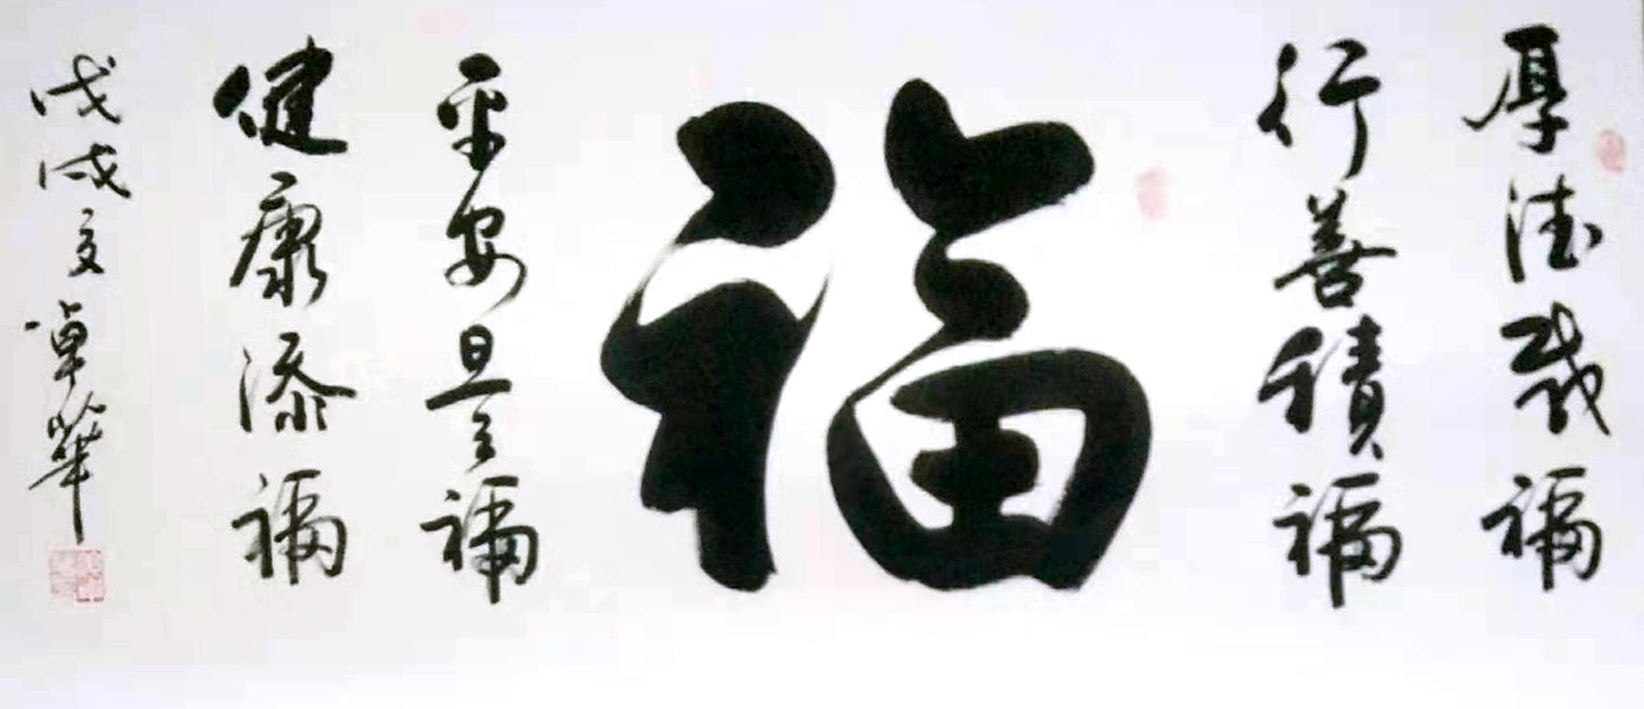 厚德載福
行善積福
福
平安是福
健康添福
戊戌夏卓華